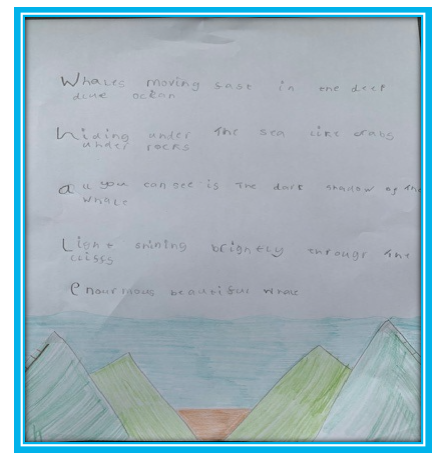 Whales moving fast in the deep
blue ocean
hiding under the sea like crabs
under rocks
all you can see is the dark shadow of the
whale
Light shining brightly through the
cliffs
enourmous beautiful whale